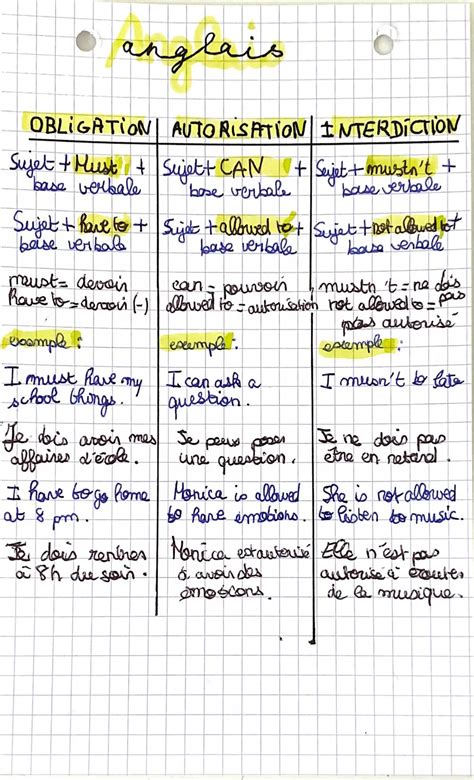 anglais
OBLIGATION
Sujet + Must +
base verbale
Sujet + have to +
base verbale
must = devoir
have to = devoir (-)
exemple :
I must have my
school things.
Je dois avoir mes
affaires d'école.
I have to go home
at 8 pm.
Je dois rentrer
à 8h du soir.
AUTORISATION
Sujet + CAN +
base verbale
Sujet + allowed to +
base verbale
can = pouvoir
allowed to = autorisation
exemple :
I can ask a
question.
Je peux poser
une question.
Monica is allowed
to have emotions.
Monica est autorisé
à avoir des
émotions.
INTERDICTION
Sujet + mustn't +
base verbale
Sujet + not allowed to +
base verbale
mustn't = ne dois
pas
not allowed to =
pas autorisé
exemple :
I musn't to late
Je ne dois pas
être en retard.
She is not allowed
to listen to music.
Elle n'est pas
autorisé à écouter
de la musique.